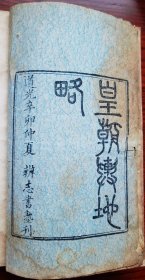 皇朝輿地
略
道光辛卯仲夏 辨志書塾刊